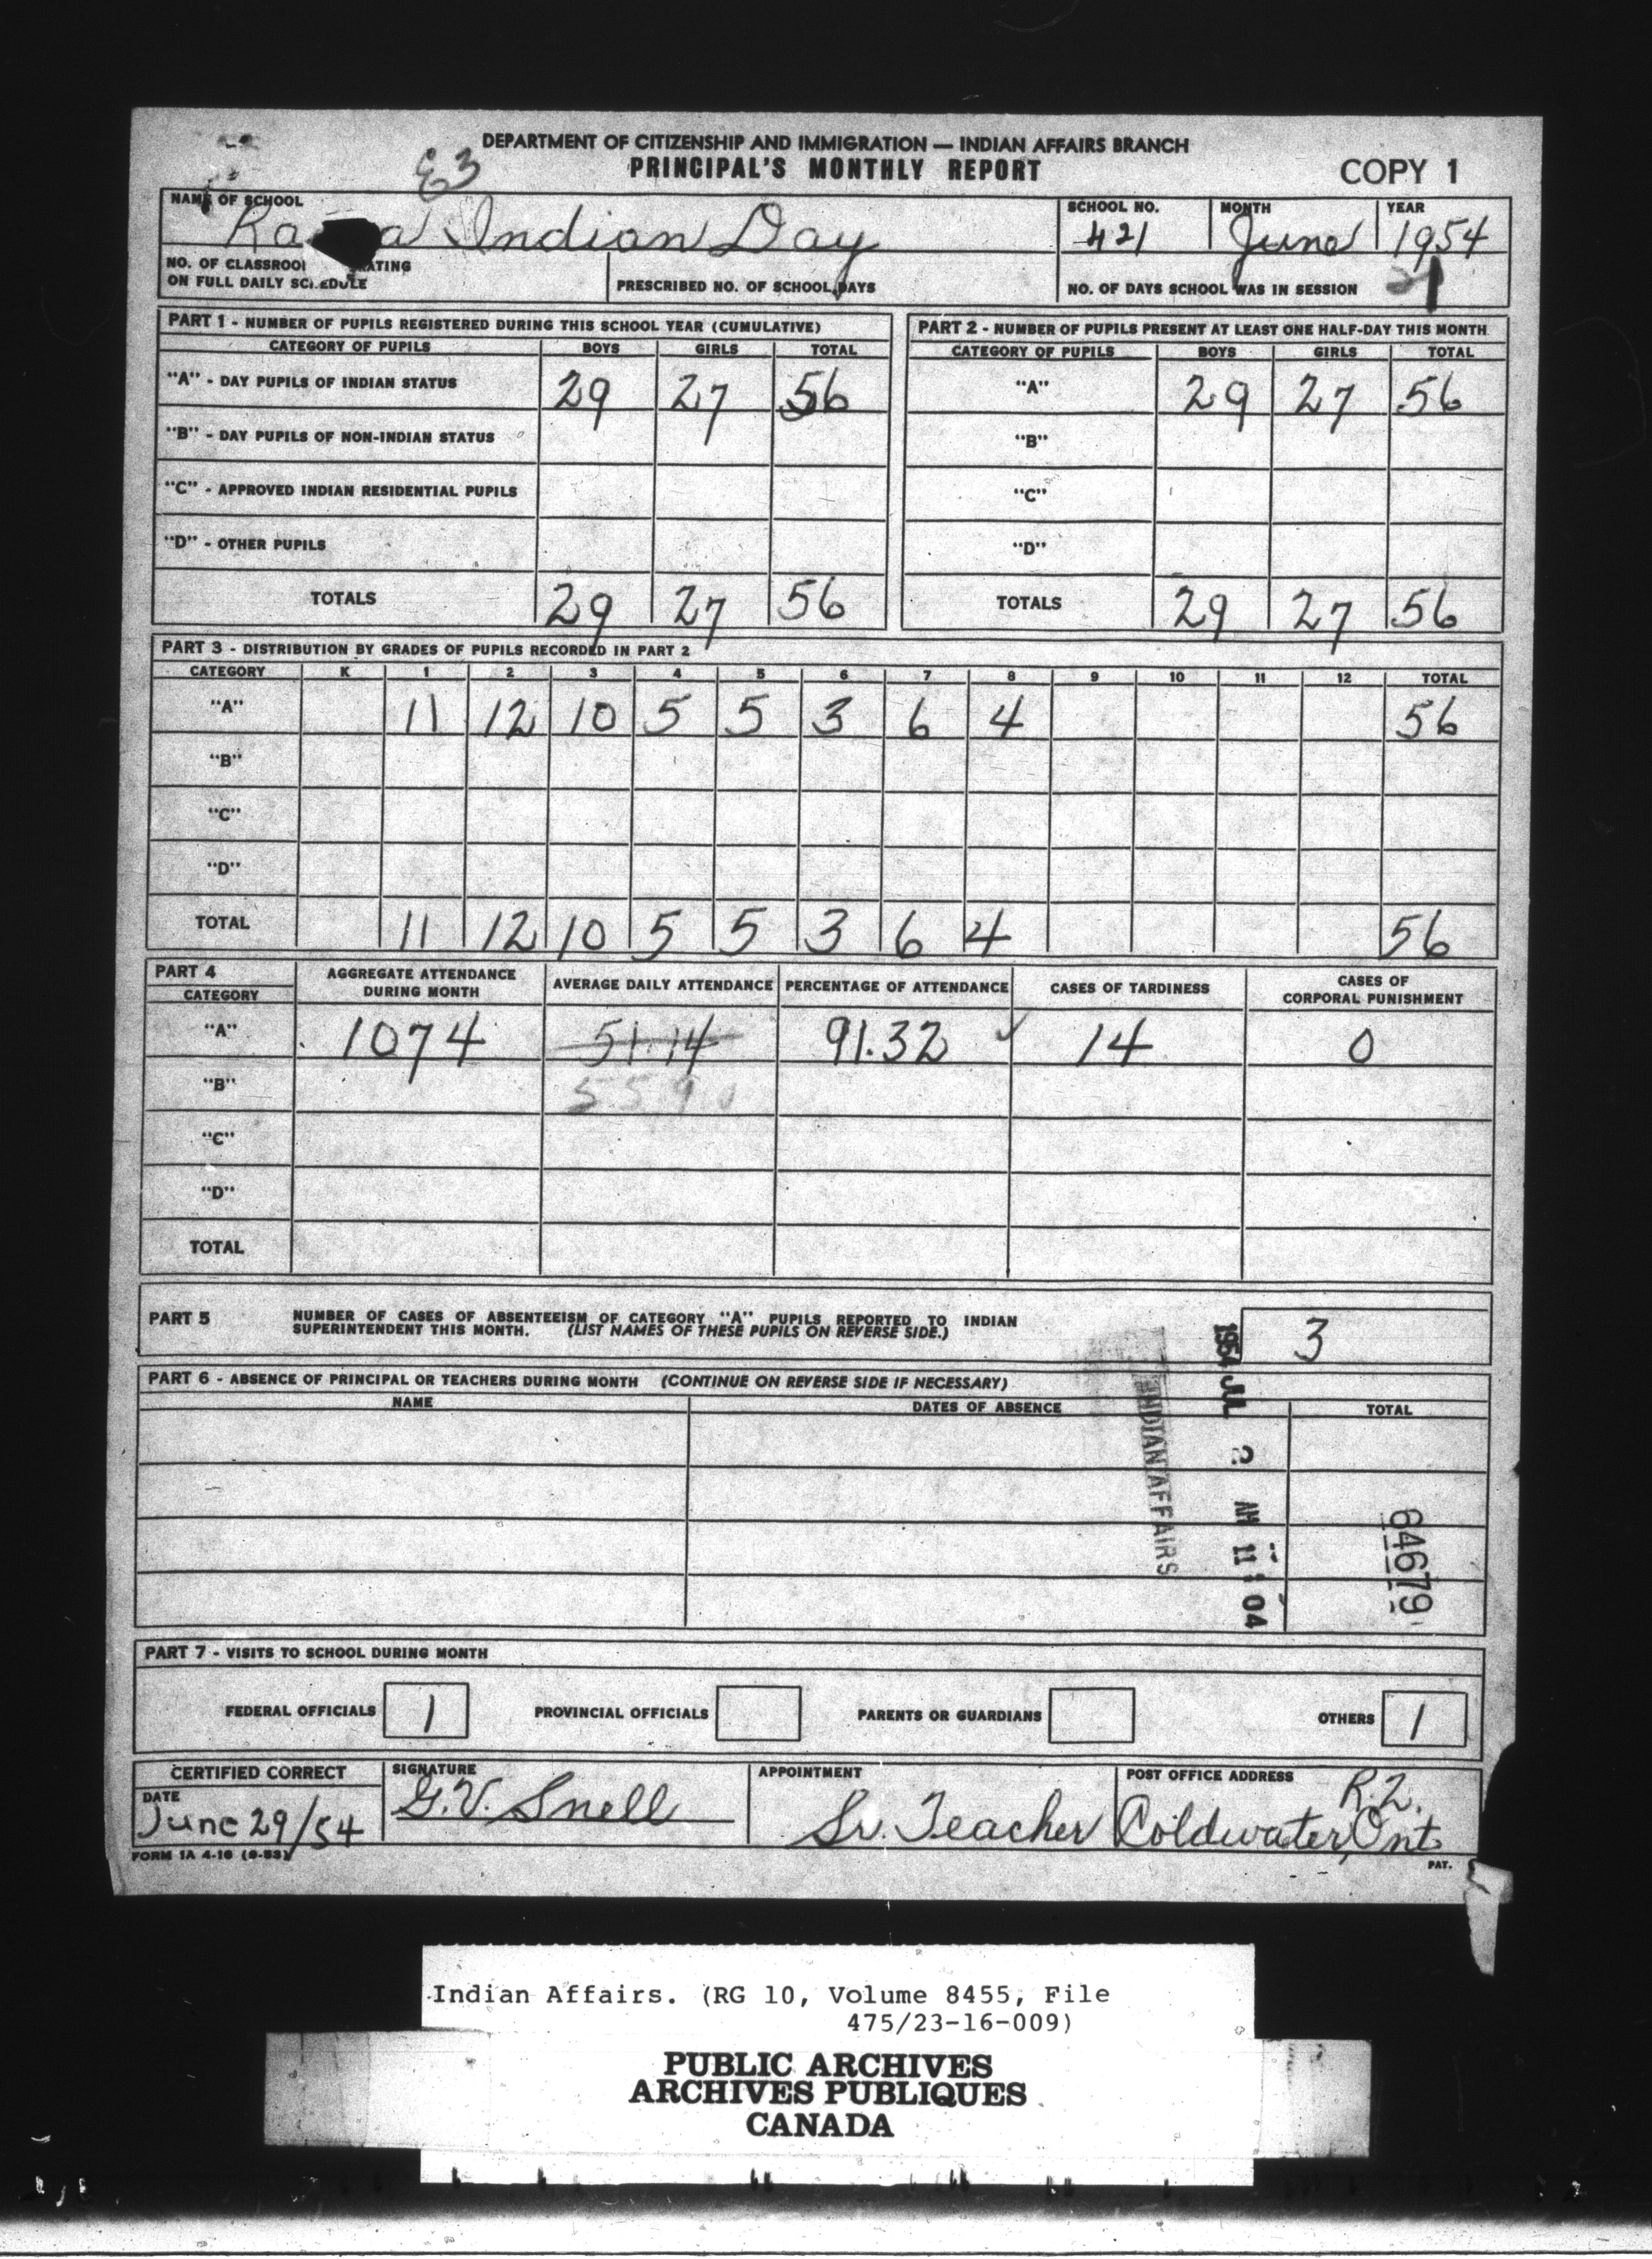 DEPARTMENT OF CITIZENSHIP AND IMMIGRATION — INDIAN AFFAIRS BRANCH
E3
PRINCIPAL'S MONTHLY REPORT
COPY 1
NAME OF SCHOOL
Ra a Indian Day
SCHOOL NO.
421
MONTH
June
YEAR
1954
NO. OF CLASSROO ATING
ON FULL DAILY SCHEDULE
PRESCRIBED NO. OF SCHOOL DAYS
NO. OF DAYS SCHOOL WAS IN SESSION
21
PART 1 - NUMBER OF PUPILS REGISTERED DURING THIS SCHOOL YEAR (CUMULATIVE)
CATEGORY OF PUPILS BOYS GIRLS TOTAL
"A" - DAY PUPILS OF INDIAN STATUS 29 27 56
"B" - DAY PUPILS OF NON-INDIAN STATUS
"C" - APPROVED INDIAN RESIDENTIAL PUPILS
"D" - OTHER PUPILS
TOTALS 29 27 56
PART 2 - NUMBER OF PUPILS PRESENT AT LEAST ONE HALF-DAY THIS MONTH
CATEGORY OF PUPILS BOYS GIRLS TOTAL
"A" 29 27 56
"B"
"C"
"D"
TOTALS 29 27 56
PART 3 - DISTRIBUTION BY GRADES OF PUPILS RECORDED IN PART 2
CATEGORY K 1 2 3 4 5 6 7 8 9 10 11 12 TOTAL
"A" 11 12 10 5 5 3 6 4 56
"B"
"C"
"D"
TOTAL 11 12 10 5 5 3 6 4 56
PART 4
CATEGORY
AGGREGATE ATTENDANCE
DURING MONTH
AVERAGE DAILY ATTENDANCE
PERCENTAGE OF ATTENDANCE
CASES OF TARDINESS
CASES OF
CORPORAL PUNISHMENT
"A" 1074 51.14 91.32 14 0
"B"
"C"
"D"
TOTAL
PART 5
NUMBER OF CASES OF ABSENTEEISM OF CATEGORY "A" PUPILS REPORTED TO INDIAN
SUPERINTENDENT THIS MONTH. (LIST NAMES OF THESE PUPILS ON REVERSE SIDE.)
3
PART 6 - ABSENCE OF PRINCIPAL OR TEACHERS DURING MONTH (CONTINUE ON REVERSE SIDE IF NECESSARY)
NAME DATES OF ABSENCE TOTAL
INDIAN AFFAIRS
1954 JUL 2 AM 11:04
64679
PART 7 - VISITS TO SCHOOL DURING MONTH
FEDERAL OFFICIALS 1 PROVINCIAL OFFICIALS PARENTS OR GUARDIANS OTHERS 1
CERTIFIED CORRECT
DATE
June 29/54
SIGNATURE
G.V. Snell
APPOINTMENT
Sr. Teacher
POST OFFICE ADDRESS
R.2.
Coldwater, Ont.
FORM 1A 4-16 (8-53)
PAT.
Indian Affairs. (RG 10, Volume 8455, File
475/23-16-009)
PUBLIC ARCHIVES
ARCHIVES PUBLIQUES
CANADA